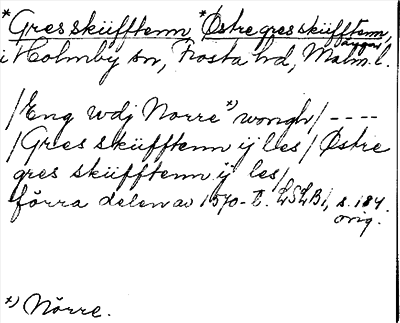 *Gres sküfftenn, *Østre gres sküfftenn,
ängar
i Holmby sn, Frosta hd, Malm. l.
/Eng wdj Norre x) wongh/ ----
/Gres sküfftenn ÿ les/ Østre
gres sküfftenn ÿ les/
förra delen av 1570-t. LSLB1, s. 184.
orig.
x) Nörre.